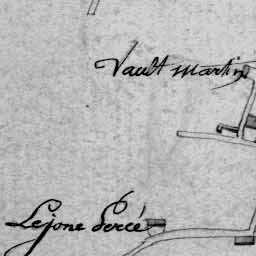 Vault martin
Lejone Percé